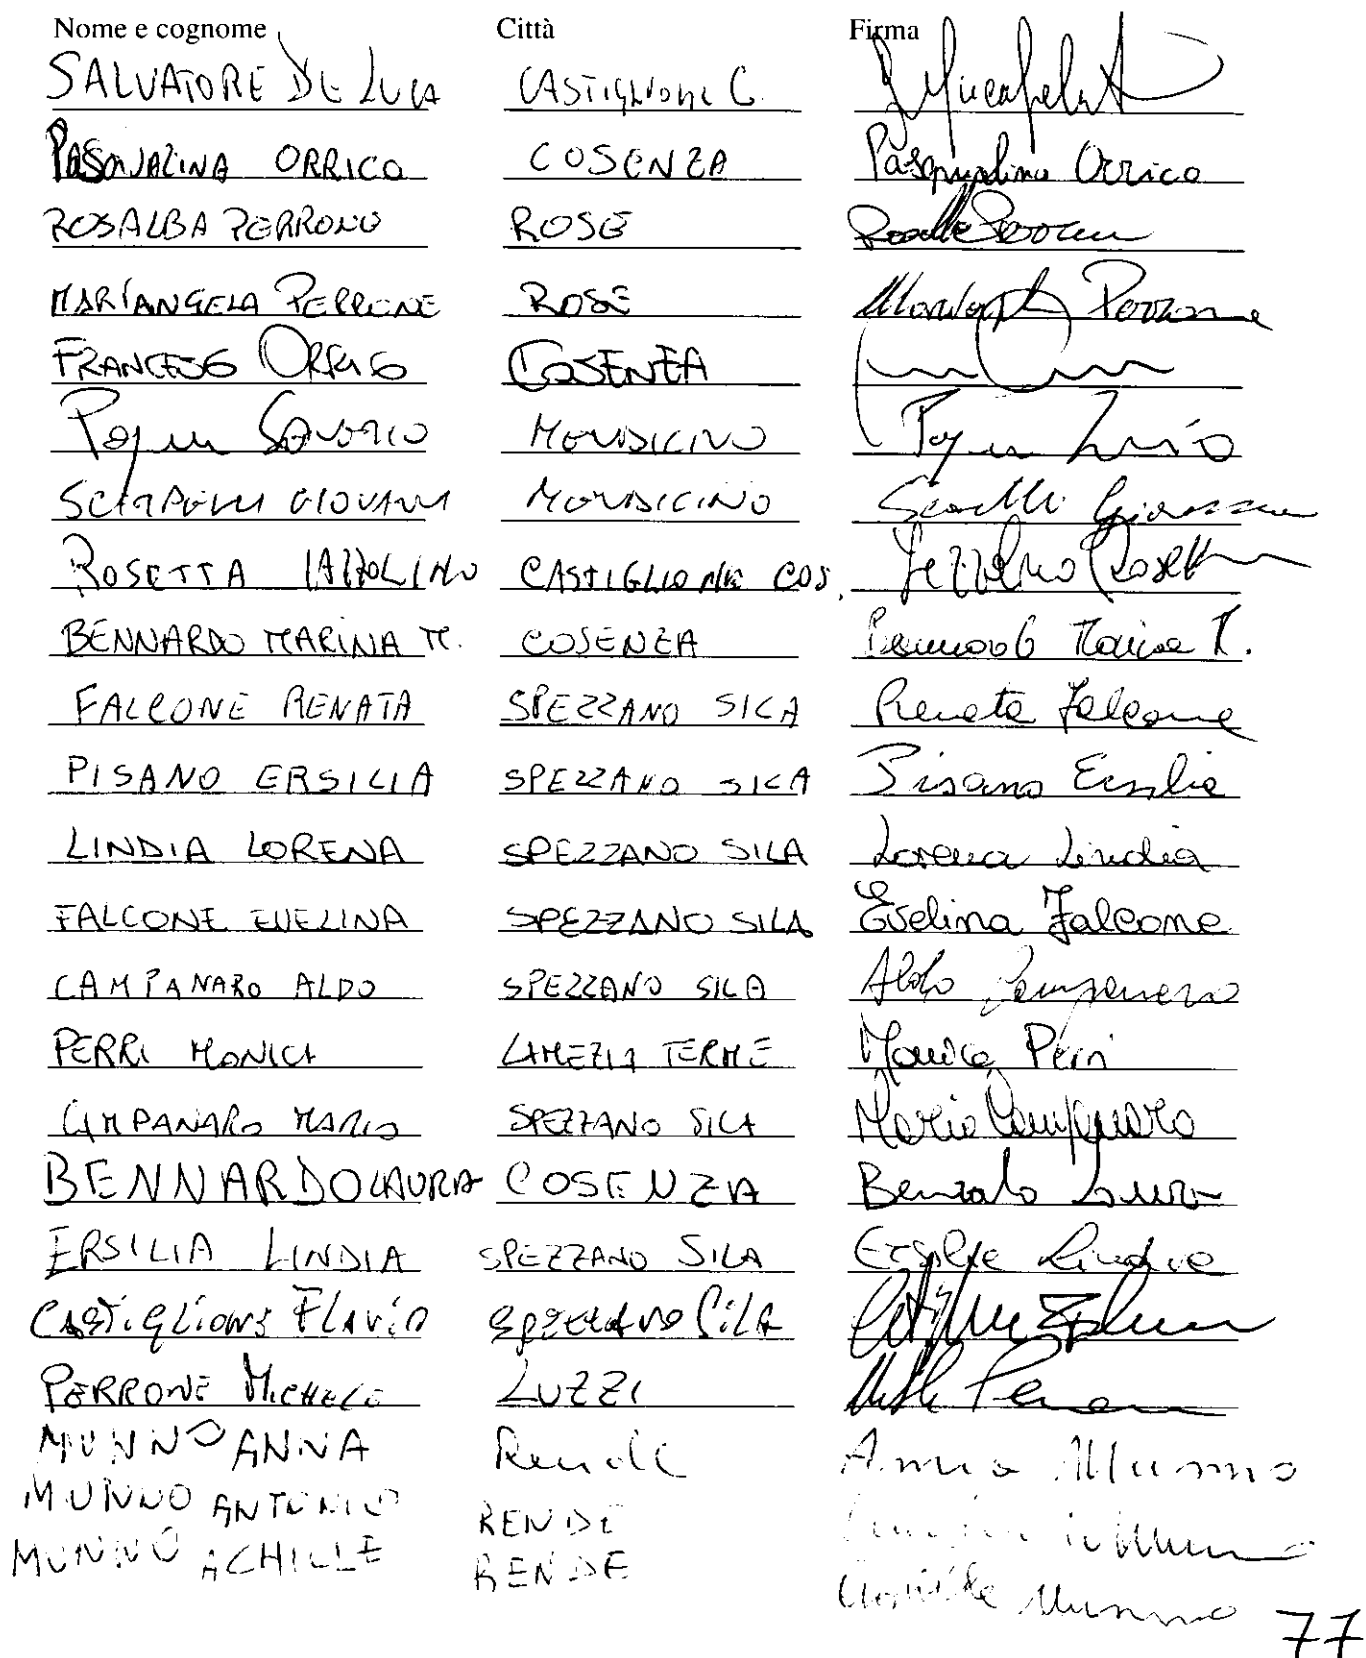 Nome e cognome Città Firma
SALVATORE DE LUCA CASTIGLIONE C.
PASQUALINA ORRICO COSENZA Pasqualina Orrico
ROSALBA PERRONE ROSE
MARIANGELA PERRONE ROSE Perrone
FRANCESCO ORRICO COSENZA
SAVERIO MENDICINO
GIOVANNI MENDICINO
ROSETTA IAZZOLINO CASTIGLIONE COS. Iazzolino Rosetta
BENNARDO MARINA M. COSENZA Bennardo Marina M.
FALCONE RENATA SPEZZANO SILA Renata Falcone
PISANO ERSILIA SPEZZANO SILA Pisano Ersilia
LINDIA LORENA SPEZZANO SILA Lorena Lindia
FALCONE EVELINA SPEZZANO SILA Evelina Falcone
CAMPANARO ALDO SPEZZANO SILA Aldo Campanaro
PERRI MONICA LAMEZIA TERME Monica Perri
CAMPANARO MARIO SPEZZANO SILA Mario Campanaro
BENNARDO LAURA COSENZA Laura
ERSILIA LINDIA SPEZZANO SILA Ersilia Lindia
CASTIGLIONE FLAVIO SPEZZANO SILA
PERRONE MICHELE LUZZI
MUNNO ANNA Rende Anna Munno
MUNNO ANTONIO RENDE
MUNNO ACHILLE RENDE Munno
77